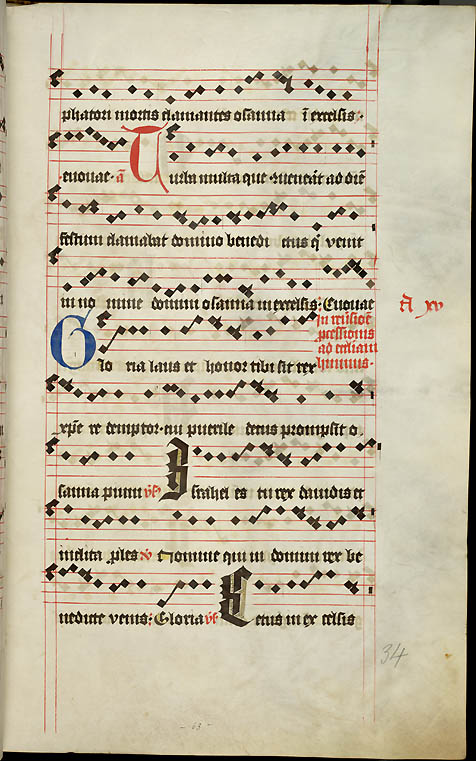 phatori mortis clamantes osanna i excelsis.
euouae. a Turba multa que gueneat ad die
festum clamabat domino benedi ctus q venit
in no mine domini osanna in excelsis: Euouae
a xv
in
pcessionis
ad eccliam
himnus.
Glo ria laus et honor tibi sit rex
xpe re demptor. cui puerile decus prompsit o
sanna pium Israhel es tu rex dauidis et
inclita ples Nomine qui in domini rex be
nedicte venis: Gloria Cetus in ex celsis
34
- 63 -